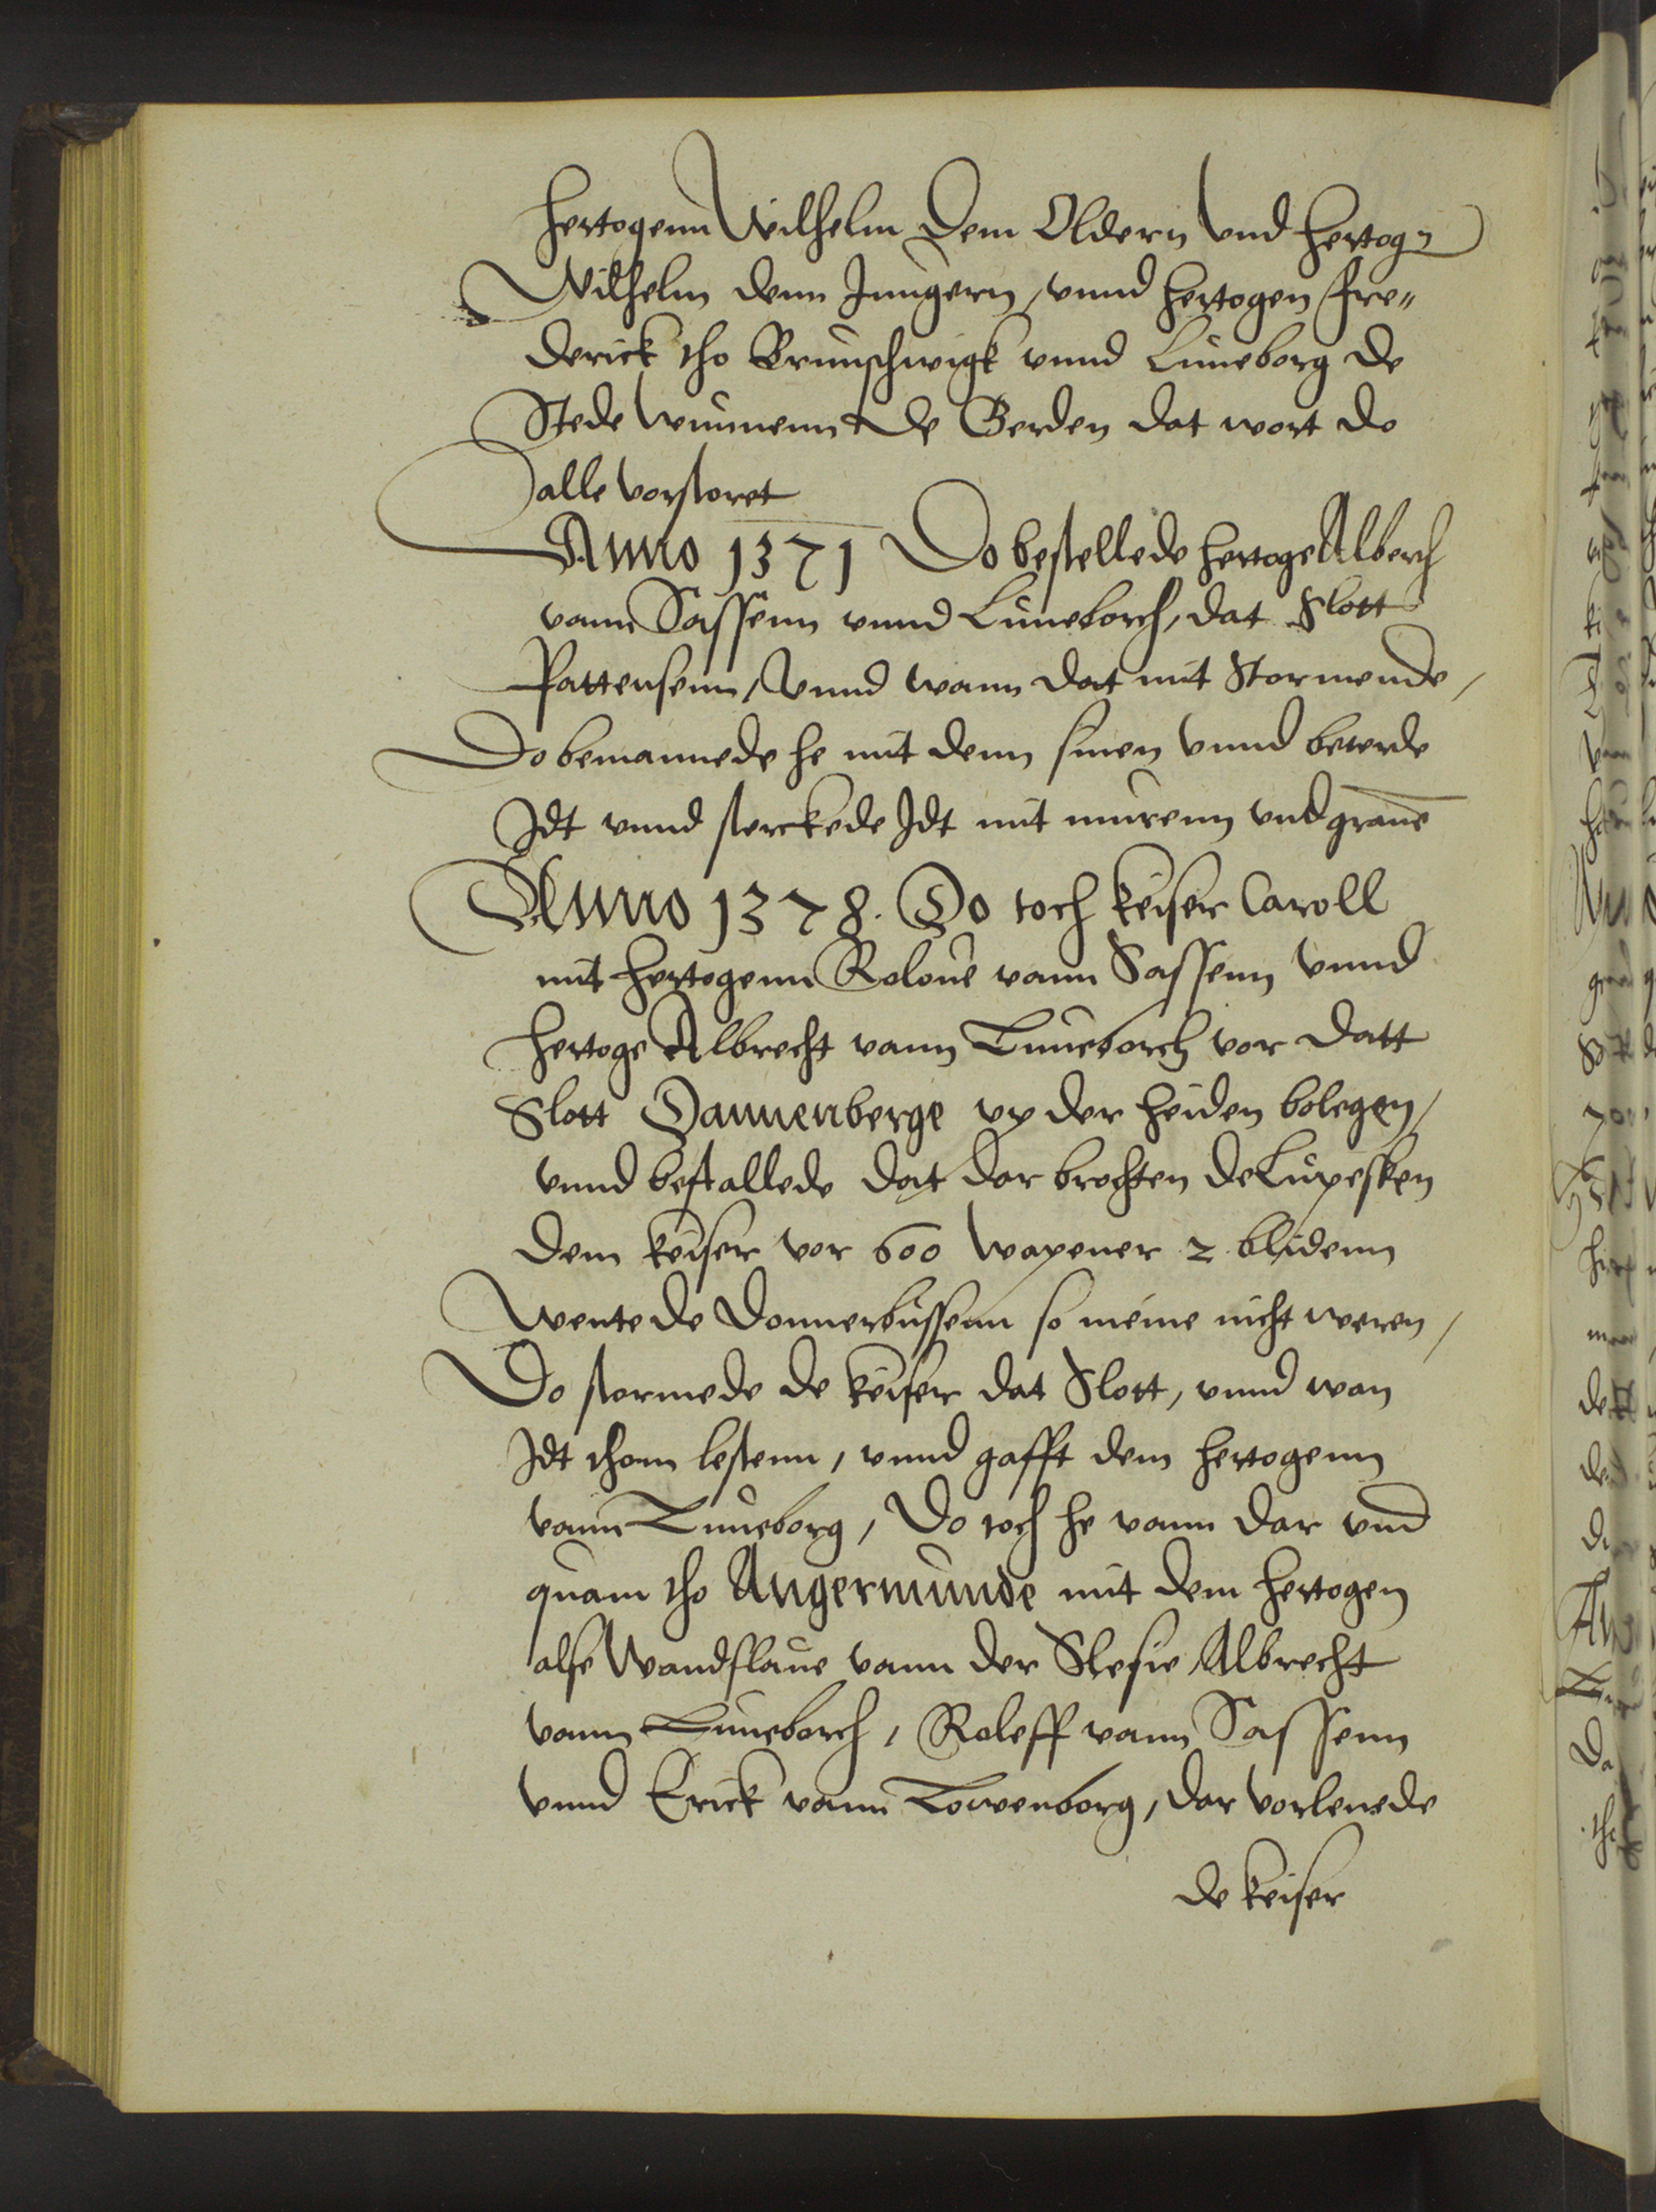 Hertogenn Wilhelm dem Oldern vnd Hertogn
Wilhelm denn Jungern, vnnd Hertogen Fre„
derick tho Brunschwigk vnnd Luneborg de
Stede wunnenn de Gerden dat wort do
alle vorstoret
Anno 1371 Do bestellede Hertoge Alberch
vann Sassenn vnnd Luneborch, dat Slott
Pattensenn, vnnd wann dat mit Stormende,
Do bemannede he mit denn sinen vnnd beterde
Jdt vnnd sterckede Jdt mit murenn vnd graue
Anno 1378. Do toch keiser Caroll
mit Hertogenn Roloue vann Sassenn vnnd
Hertoge Albrecht vann Luneborch vor datt
Slott Dannenberge vp der Heiden bolegen,
vnnd bestallede dat dar brochten de Lupesken
dem keiser vor 600 wapener 2 blidenn
Wente de Donnerbussenn so meine nicht weren,
Do stormede de keiser dat Slott, vnnd wan
Jdt thom lestenn, vnnd gafft dem Hertogenn
vann Luneborg, Do toch he vann dar vnd
quam tho Angermunde mit dem Hertogen
alse Wandslaue vann der Slesie Albrecht
vann Luneborch, Roleff vann Sassenn
vnnd Erick vann Lowenborg, dar vorlenede
de keiser